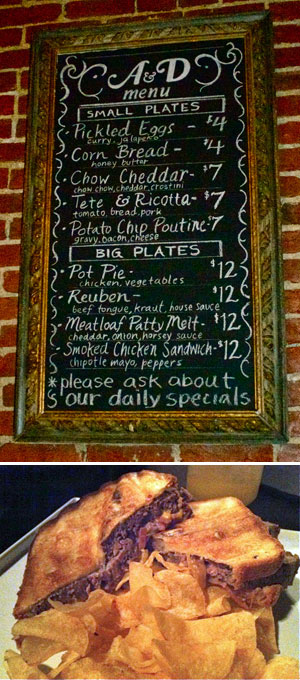 A&D
menu
SMALL PLATES
· Pickled Eggs - $4
curry, jalapeño
· Corn Bread - $4
honey butter
· Chow Cheddar - $7
chow chow, cheddar, crostini
· Tete & Ricotta - $7
tomato, bread, pork
· Potato Chip Poutine - $7
gravy, bacon, cheese
BIG PLATES
· Pot Pie - $12
chicken, vegetables
· Reuben - $12
beef tongue, kraut, house sauce
· Meatloaf Patty Melt - $12
cheddar, onion, horsey sauce
· Smoked Chicken Sandwich - $12
chipotle mayo, peppers
* please ask about
our daily specials